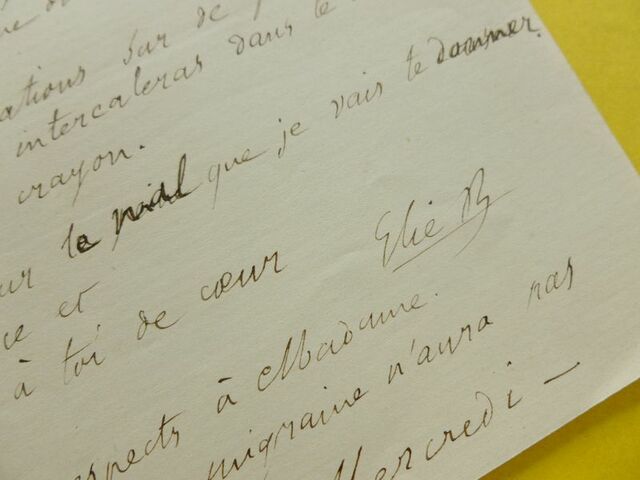 ations sur de
intercaleras dans le
crayon.
ur le mal que je vais te donner.
ce et
à toi de cœur Elie R
espects à Madame.
migraine n'aura pas
Mercredi —